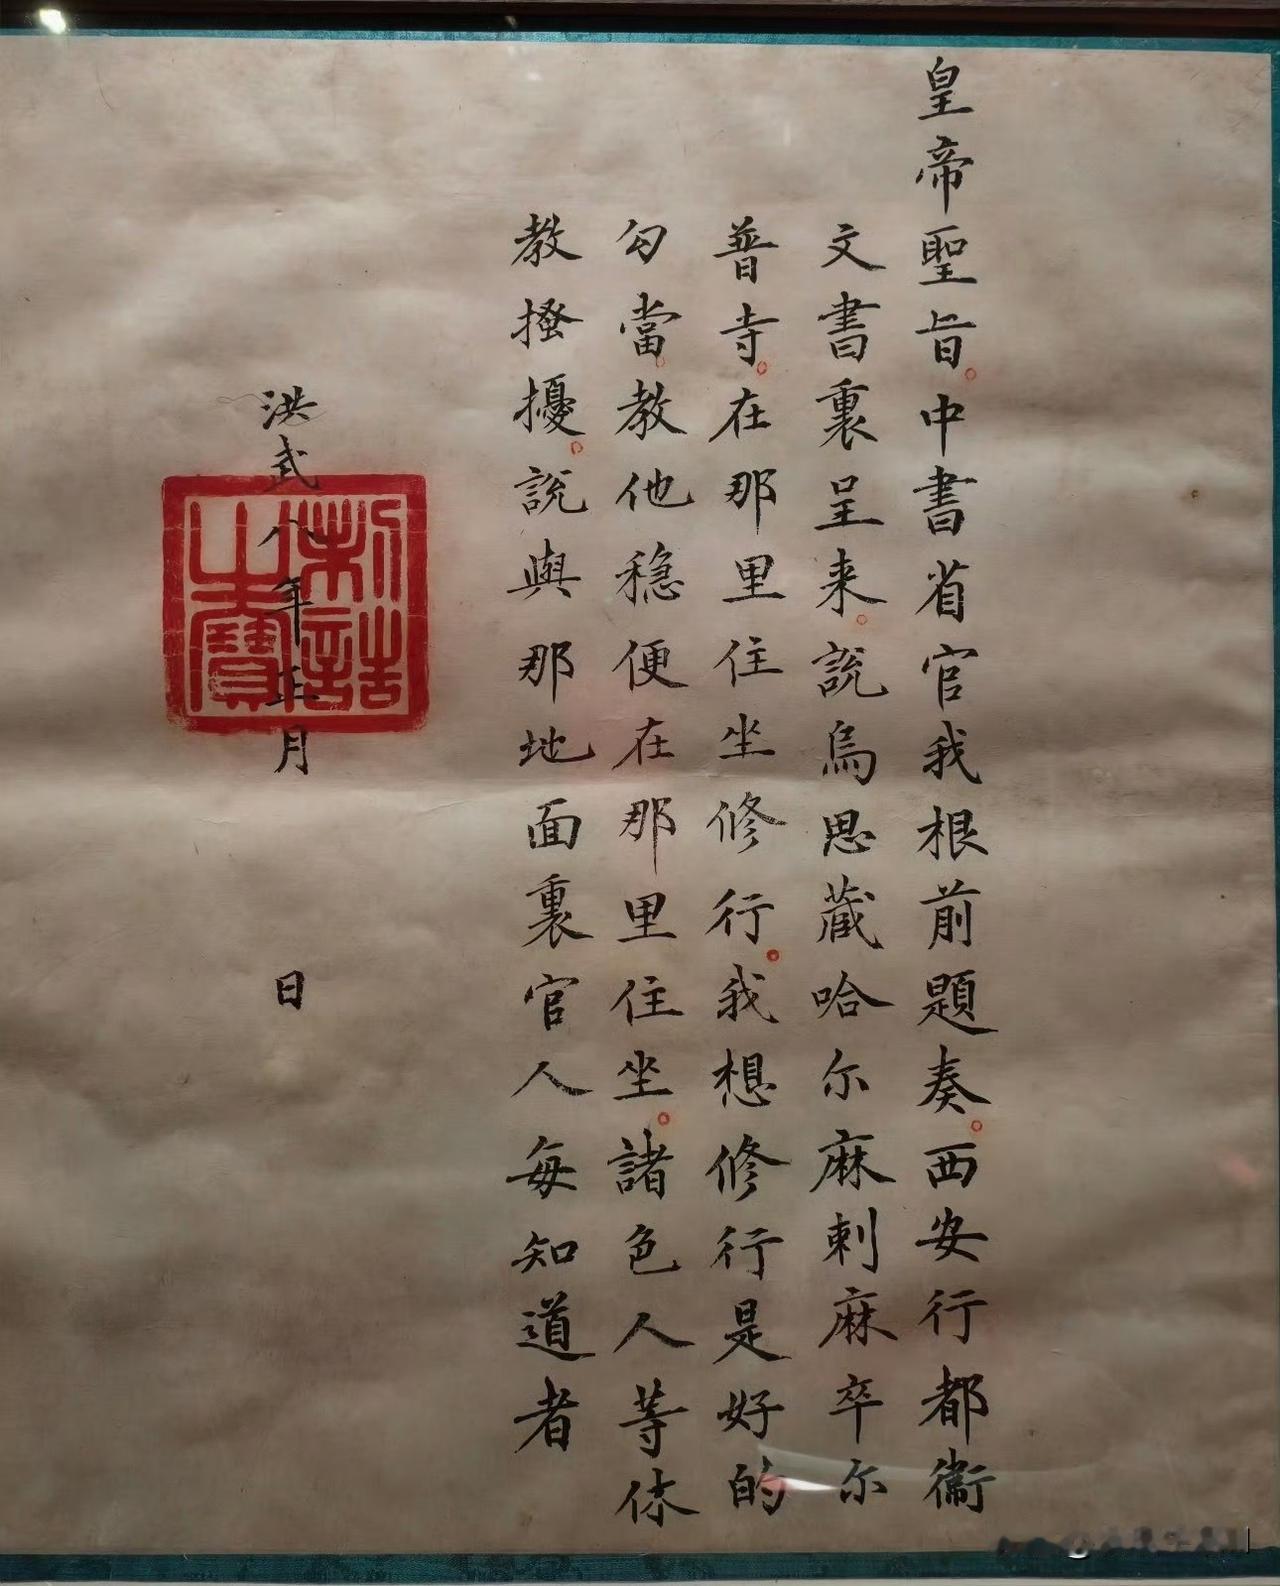 皇帝聖旨。中書省官我根前題奏。西安行都衞
文書裏呈来。說烏思藏哈尔麻剌麻卒尔
普寺。在那里住坐修行。我想修行是好的
勾當。教他穩便在那里住坐。諸色人等休
教搔擾。說與那地面裏官人每知道者
洪武八年正月 日
制誥之寶